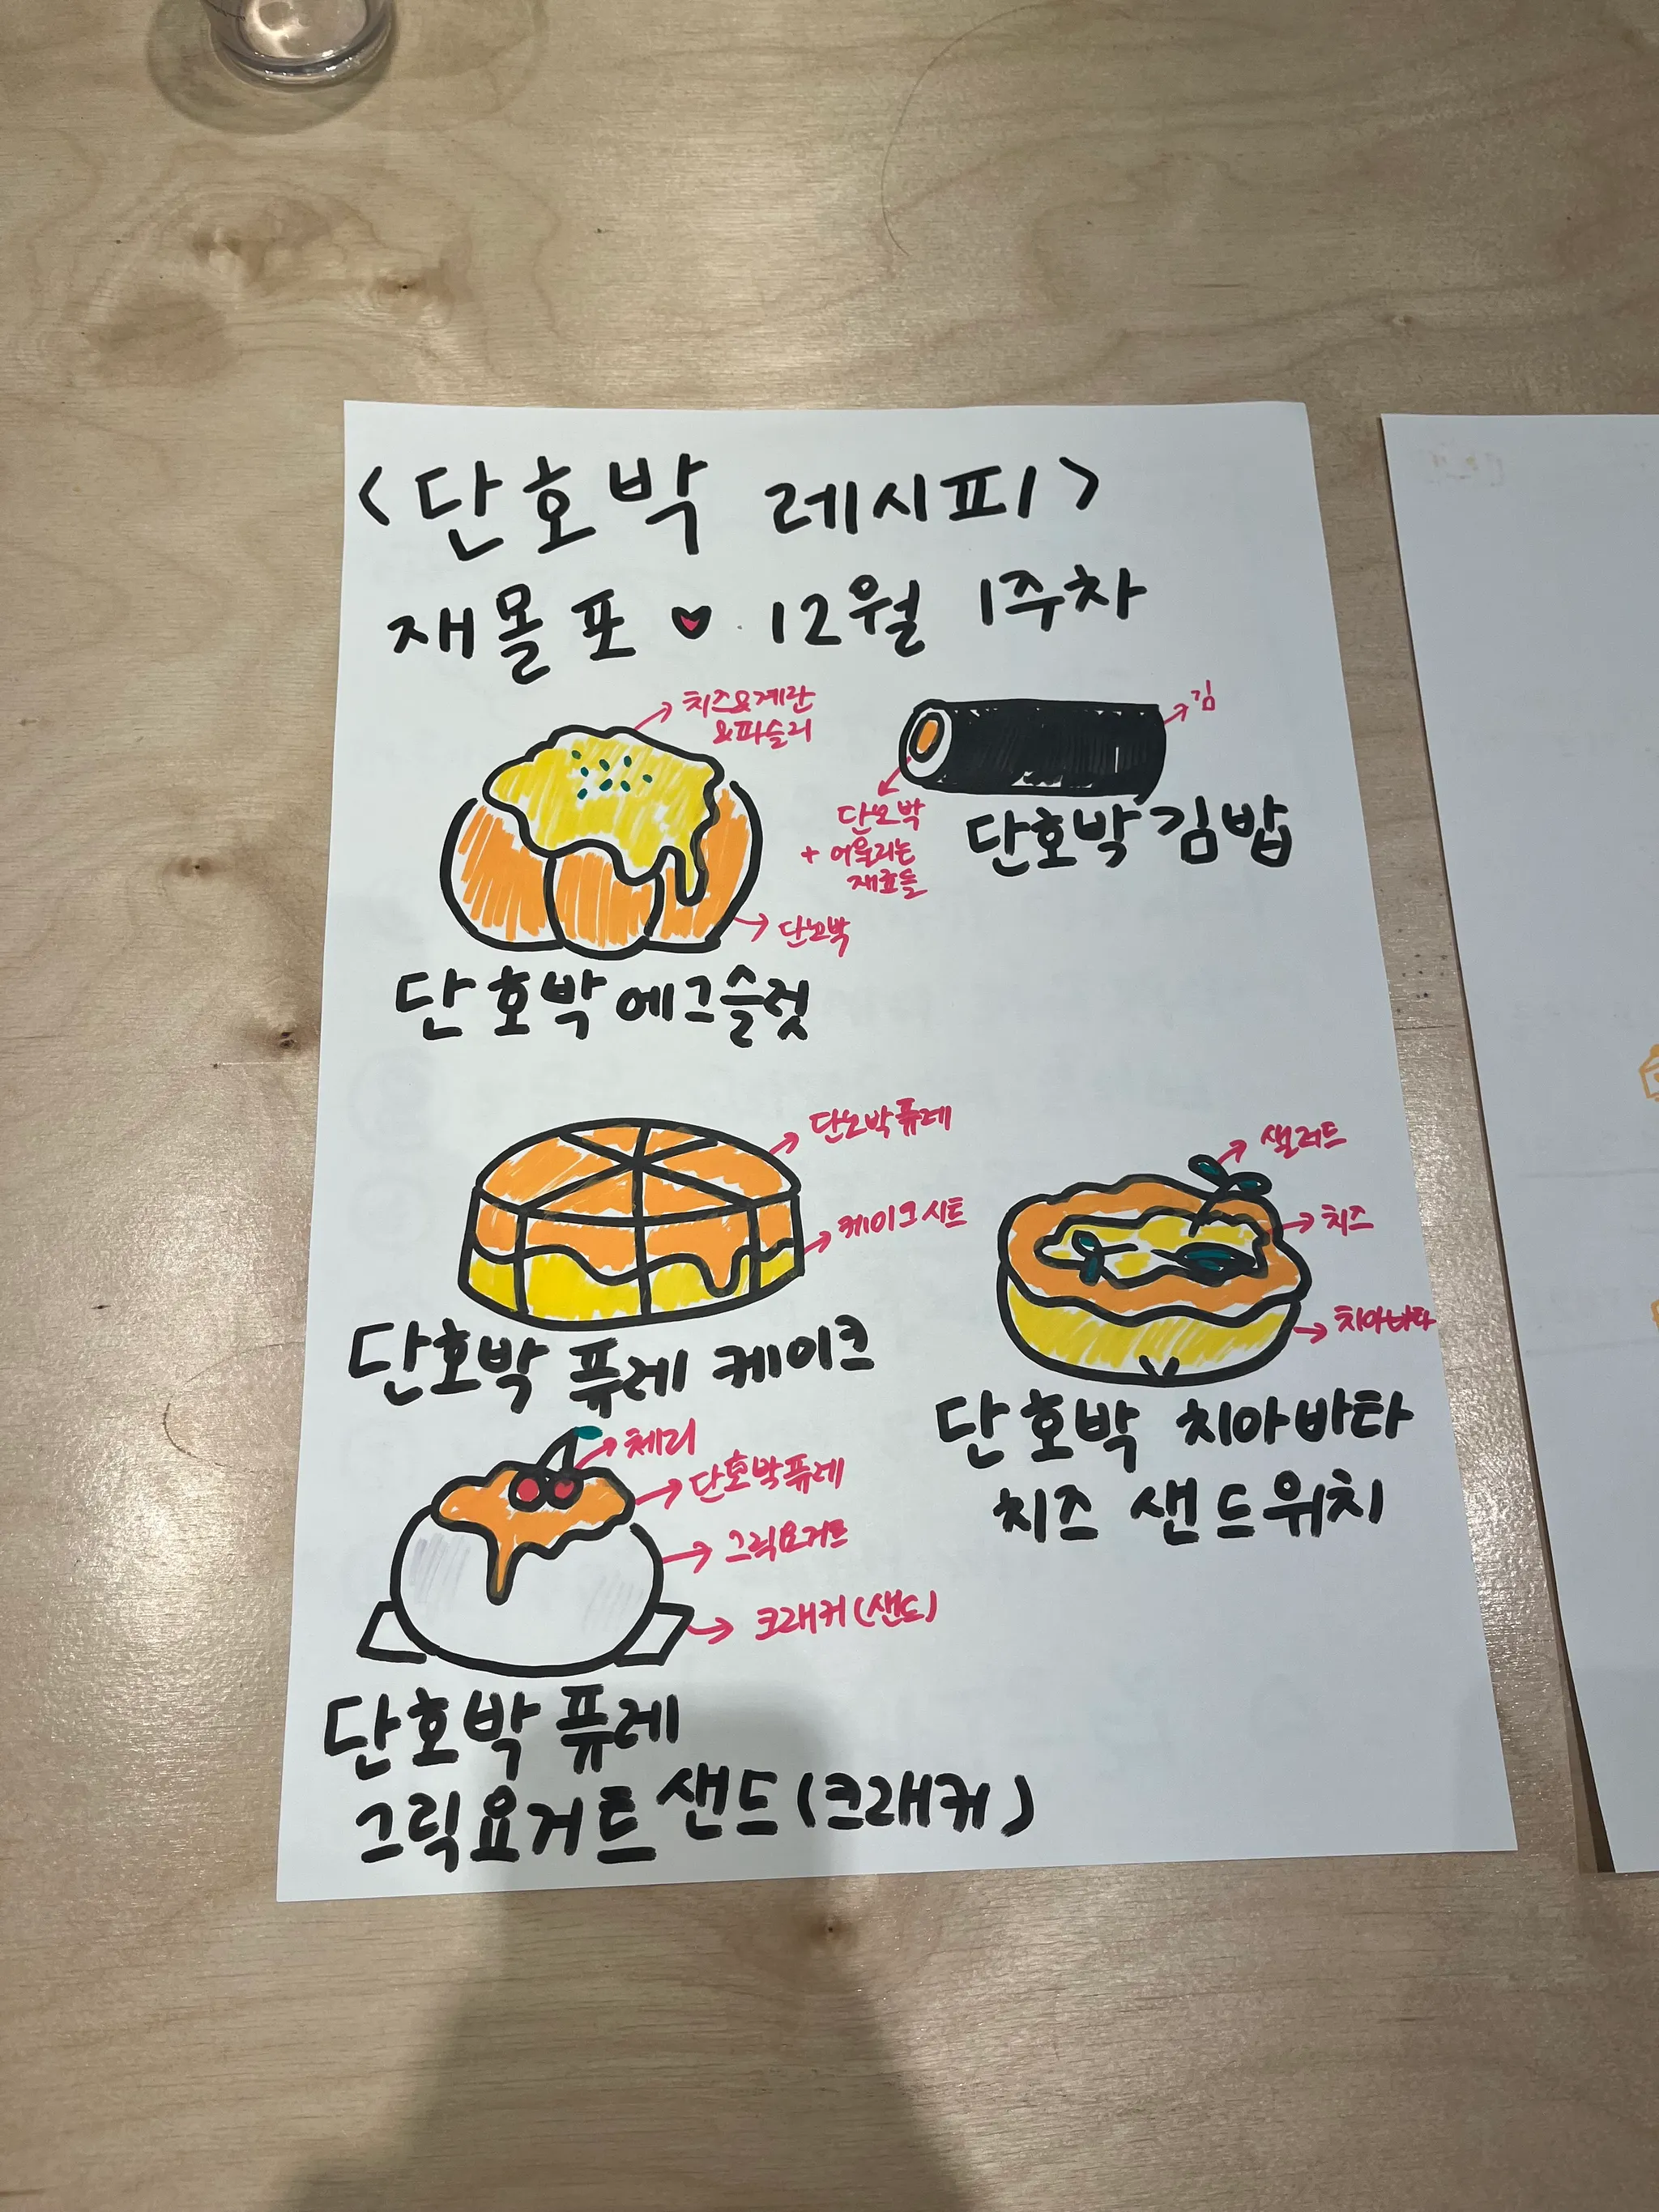 <단호박 레시피>
재몰포 ♥ 12월 1주차
치즈&계란
&파슬리
단호박
단호박 에그슬럿
김
단호박
+ 어울리는
재료들
단호박 김밥
단호박 퓨레
케이크 시트
단호박 퓨레 케이크
샐러드
치즈
치아바타
단호박 치아바타
치즈 샌드위치
체리
단호박 퓨레
그릭요거트
크래커 (샌드)
단호박 퓨레
그릭요거트 샌드 (크래커)